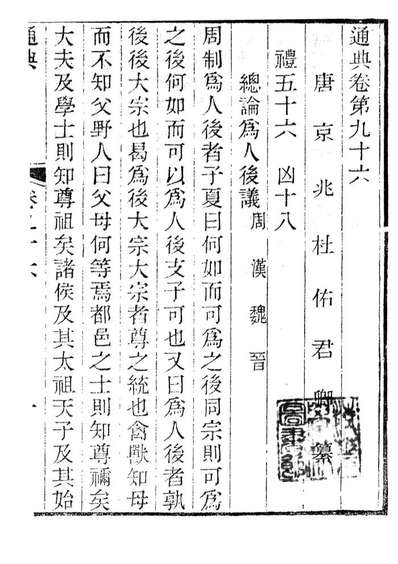 通典卷第九十六
唐京兆杜佑君卿纂
禮五十六 凶十八
總論為人後議 周 漢 魏 晉
周制為人後者子夏曰何如而可為之後同宗則可為
之後何如而可以為人後支子可也又曰為人後者孰
後後大宗也曷為後大宗大宗者尊之統也禽獸知母
而不知父野人曰父母何等焉都邑之士則知尊禰矣
大夫及學士則知尊祖矣諸侯及其太祖天子及其始
通典 卷九十六 一